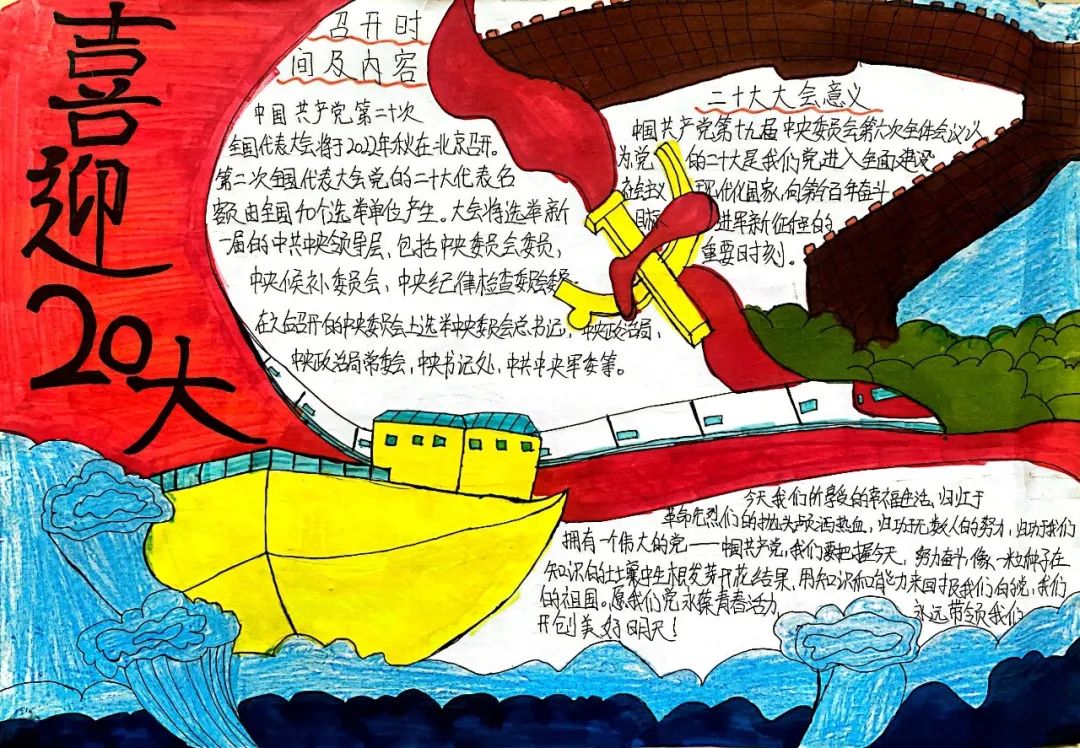 喜迎20大
召开时
间及内容
中国共产党第二十次
全国代表大会将于2022年秋在北京召开。
第二次全国代表大会党的二十大代表名
额由全国40个选举单位产生。大会将选举新
一届的中共中央领导层，包括中央委员会委员，
中央候补委员会，中央纪律检查委员会委
召开的中央委员会上选举中央委员会总书记，中央政治局，
中央政治局常委会，中央书记处，中共中央军委等。
二十大大会意义
中国共产党第十九届中央委员会第六次全体会议认
为党的二十大是我们党进入全面建设
现代化国家，向第百年奋斗
目标进军新征程的
重要时刻。
今天我们所享受的幸福生活，归江于
革命先烈们的抛头颅洒热血，归功无数人的努力，归功我们
拥有一个伟大的党——中国共产党，我们要把握今天，努力奋斗，像一粒种子在
知识的土壤中生根发芽开花结果，用知识和能力来回报我们的党，我们
的祖国。愿我们党永葆青春活力，永远带领我们
开创美好明天！